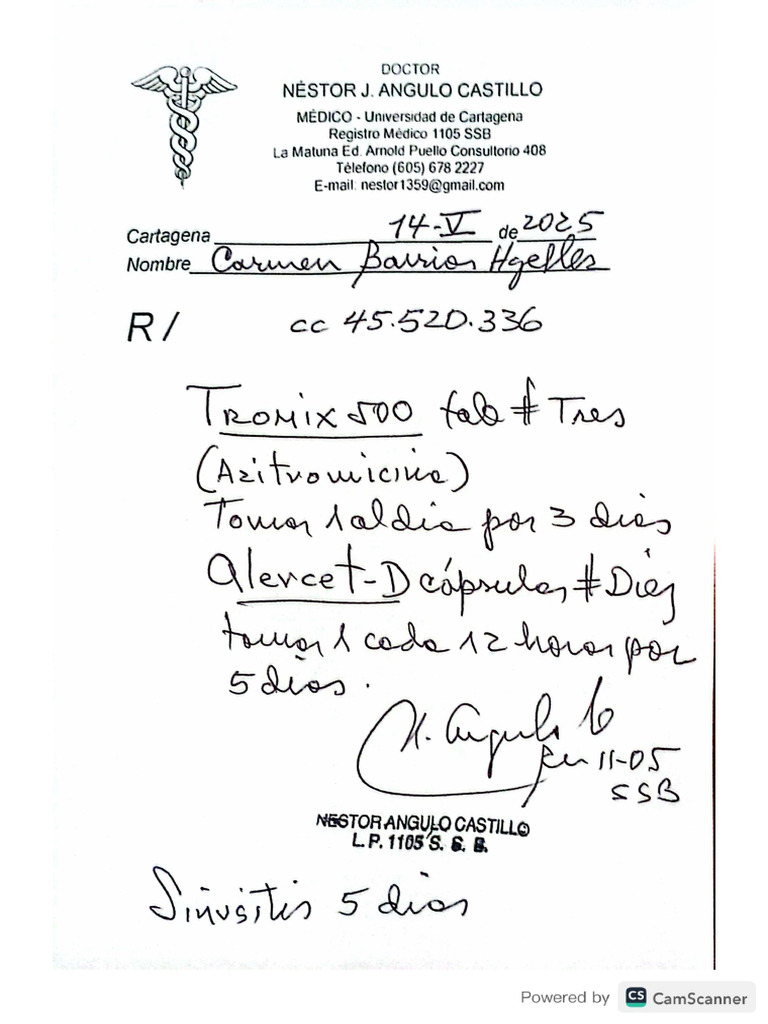 DOCTOR
NÉSTOR J. ANGULO CASTILLO
MÉDICO - Universidad de Cartagena
Registro Médico 1105 SSB
La Matuna Ed. Arnold Puello Consultorio 408
Télefono (605) 678 2227
E-mail: nestor1359@gmail.com
Cartagena 14-V de 2025
Nombre Carmen Barrios
R/ cc 45.520.336
Tromix 500 tab # Tres
(Azitromicina)
Tomar 1 al día por 3 días
Alercet-D cápsulas # Diez
tomar 1 cada 12 horas por
5 días.
N. Angulo C
RM 11-05
SSB
NESTOR ANGULO CASTILLO
L.P. 1105 S. S. B.
Sinusitis 5 días
Powered by CS CamScanner